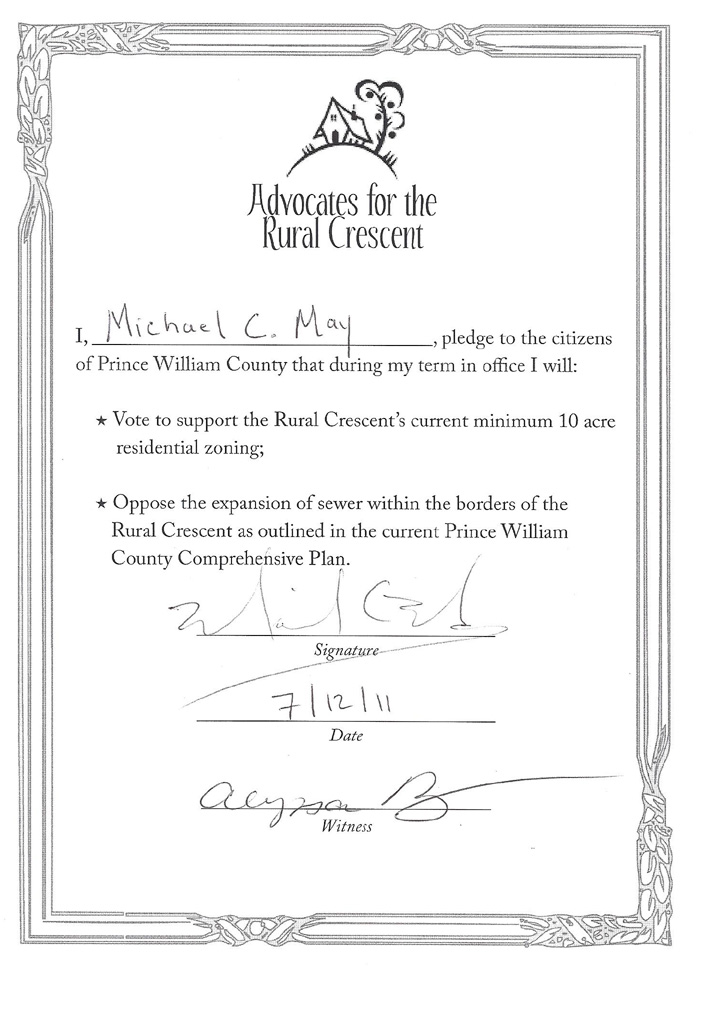 Advocates for the
Rural Crescent
I, Michael C. May, pledge to the citizens
of Prince William County that during my term in office I will:
★ Vote to support the Rural Crescent's current minimum 10 acre
residential zoning;
★ Oppose the expansion of sewer within the borders of the
Rural Crescent as outlined in the current Prince William
County Comprehensive Plan.
Signature
7/12/11
Date
Alyssa
Witness